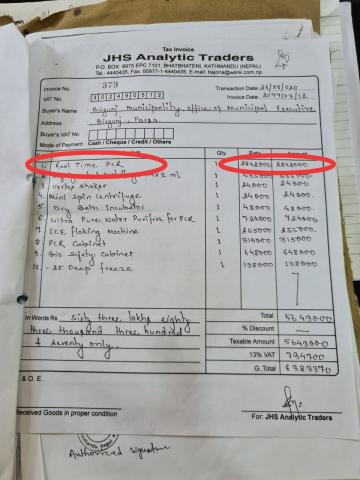 Tax Invoice
JHS Analytic Traders
P.O. BOX. 8975 EPC 7101, BHATBHATENI, KATHMANDU (NEPAL)
Tel.: 4440435, Fax: 00977-1-4440435, E-mail: bajoria@wlink.com.np
Invoice No. 379 Transaction Date: 26/06/020
VAT No. 302490512 Invoice Date: 2077/03/12
Buyer's Name Birgunj Municipality, office of Municipal Executive
Address Birgunj, Parsa.
Buyer's VAT No.
Mode of Payment Cash / Cheque / Credit / Others
Qty. Rate Amount
Real Time PCR 1 2848000 2848000
ml 1
Vertex shaker 1 24000 24000
Mini spin centrifuge 1 24000 24000
5. Dry Bath Incubator 1 48000 48000
6. Ultra Pure Water Purifier for PCR 1 724000 724000
7. ICE flaking Machine 1 255000 255000
8. PCR Cabinet 1 315000 315000
9. Bio safety cabinet 1 648000 648000
-25 Deep freeze 1 198000 198000
In Words Rs Sixty three lakhs eighty
three thousand three hundred
& seventy only.
Total 5649000
% Discount —
Taxable Amount 5649000
13% VAT 734700
G. Total 6383370
& O. E.
Received Goods in proper condition For: JHS Analytic Traders
Authorized signature